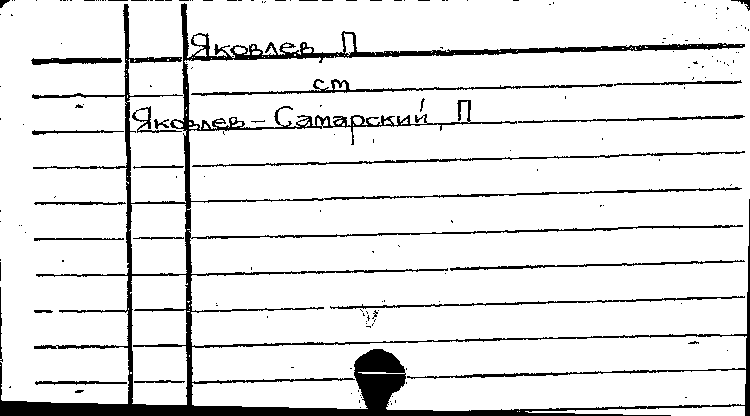 Яковлев, П
ст
Яковлев - Самарский, П